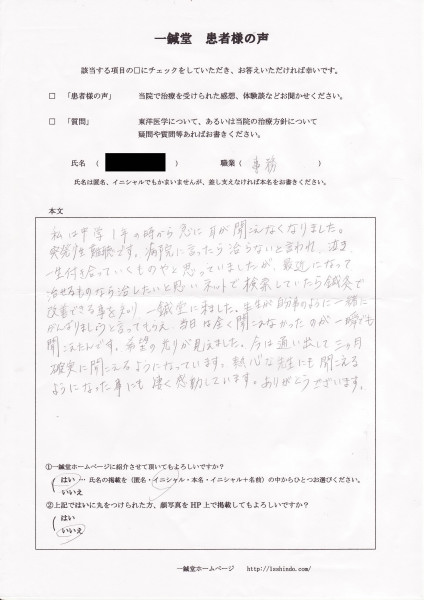 一鍼堂 患者様の声
該当する項目の□にチェックをしていただき、お答えいただければ幸いです。
□ 「患者様の声」 当院で治療を受けられた感想、体験談などお聞かせください。
□ 「質問」 東洋医学について、あるいは当院の治療方針について
疑問や質問等あればお書きください。
氏名 ( ) 職業( 事務 )
氏名は匿名、イニシャルでもかまいませんが、差し支えなければ本名をお書きください。
本文
私は中学1年の時から急に耳が聞こえなくなりました。
突発性難聴です。病院に言ったら治らないと言われ、泣き、
一生付き合っていくものやと思っていましたが、最近になって
治せるものなら治したいと思いネットで検索していたら鍼灸で
改善できる事を知り 一鍼堂に来ました。先生が自分事のように一緒に
がんばりましょうと言ってもらえ、当日は全く聞こえなかったのが一瞬でも
聞こえたんです。希望の光りが見えました。今は通い出して三ヶ月
確実に聞こえるようになっています。熱心な先生にも聞こえる
ようになった事にも凄く感動しています。ありがとうございます。
①一鍼堂ホームページに紹介させて頂いてもよろしいですか？
はい … 氏名の掲載を (匿名・イニシャル・本名・イニシャル＋名前) の中からひとつお選びください。
いいえ
②上記ではいに丸をつけられた方、顔写真を HP 上で掲載してもよろしいですか？
はい
いいえ
一鍼堂ホームページ http://isshindo.com/